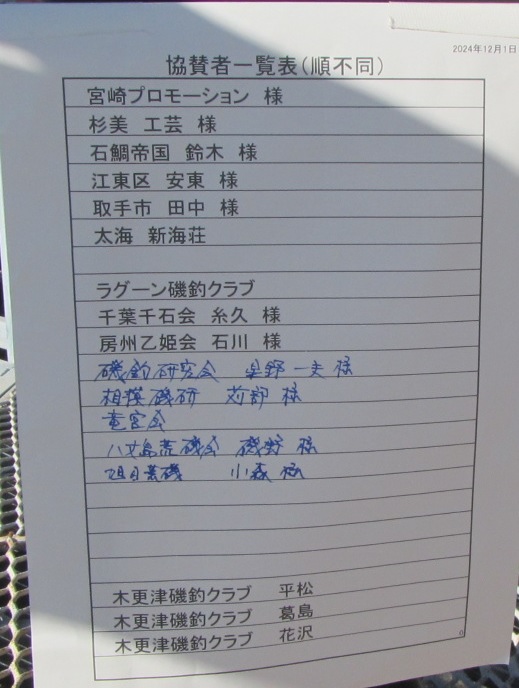 2024年12月1日
協賛者一覧表(順不同)
宮崎プロモーション 様
杉美 工芸 様
石鯛帝国 鈴木 様
江東区 安東 様
取手市 田中 様
太海 新海荘
ラグーン磯釣クラブ
千葉千石会 糸久 様
房州乙姫会 石川 様
磯釣研究会 野一夫 様
相模磯研 苅部 様
竜宮会
八丈島荒磯会 磯野 様
小森 様
木更津磯釣クラブ 平松
木更津磯釣クラブ 葛島
木更津磯釣クラブ 花沢